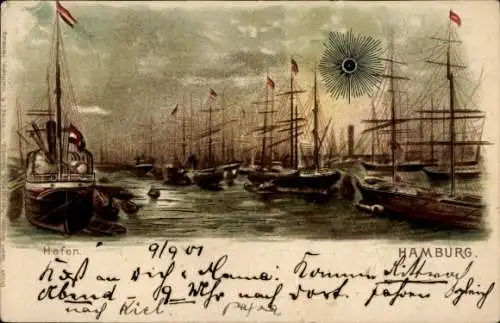 Hafen.
HAMBURG.
9/9 01
an Dich Mama. Komme Mittwoch
Abend 9 Uhr nach dort. fahren
nach Kiel. Papa